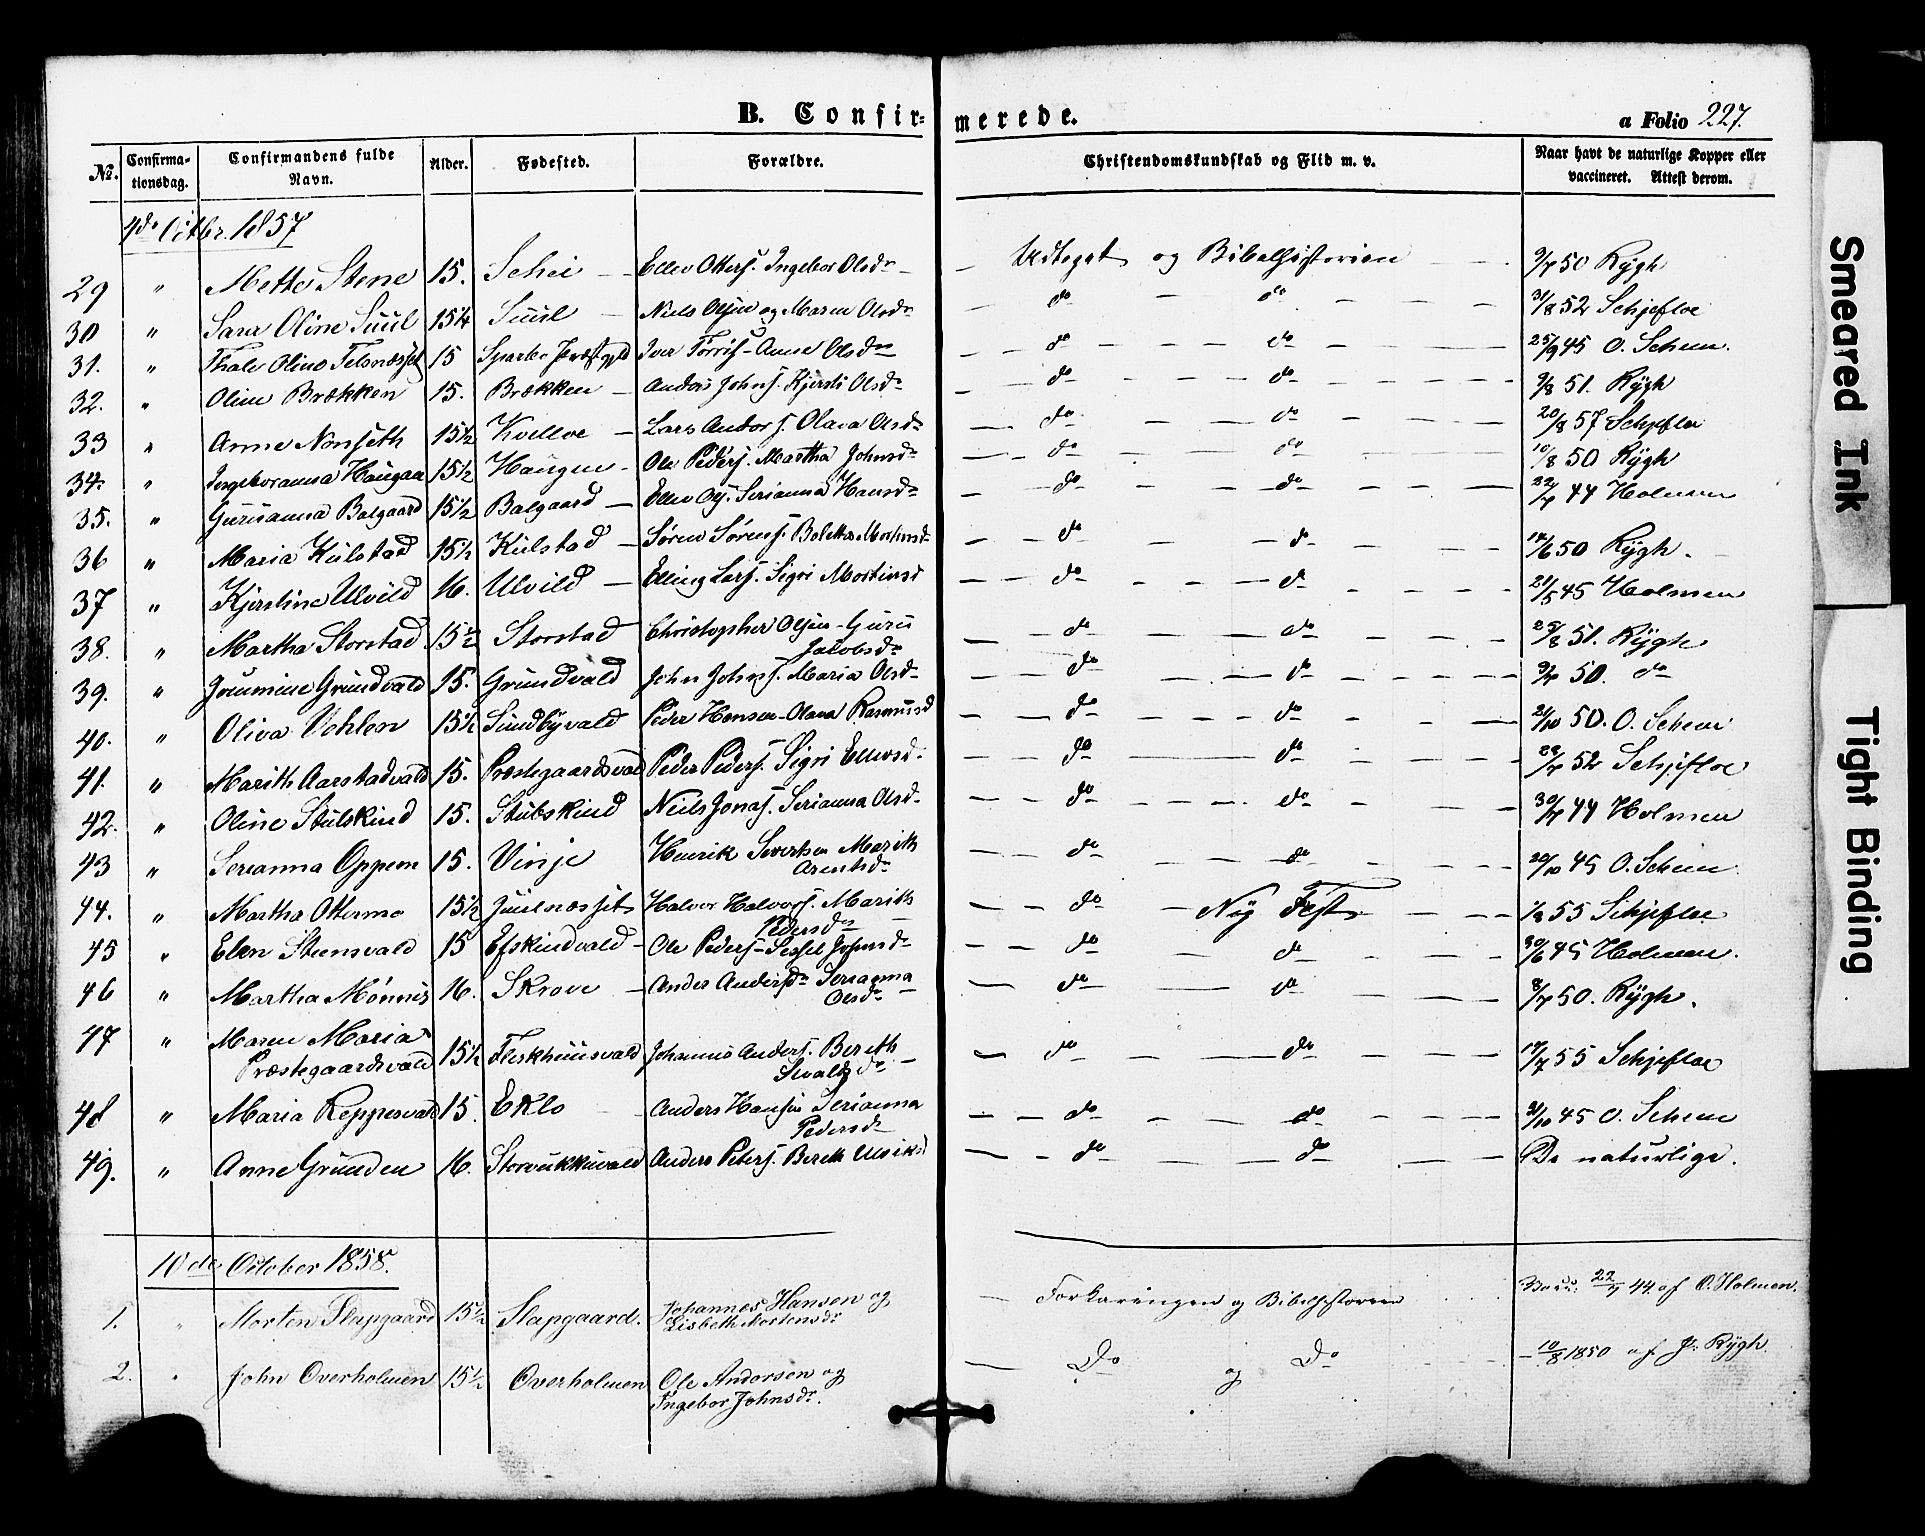 B. Confir-merede. a Folio 227.
No. Confirma-tionsdag. Confirmandens fulde Navn. Alder. Fødested. Forældre. Christendomskundskab og Flid m. v. Naar havt de naturlige Kopper eller vaccineret. Attest derom.
4de Octbr. 1857
29 " Mette Stene 15. Schei Ellev Otters. Ingebor Olsdr Udtoget og Bibelhistorien 9/7 50 Rygh
30 " Sara Oline Suul 15 1/4 Suul Niels Olsen og Maren Olsdr do do 31/8 52 Schjefloe
31. " Thale Oline 15 Sparbo Iver Torris. Anne Olsdr do do 25/9 45 O. Schem.
32. " Oline Brækken 15. Brækken Anders Johns. Kjersti Olsdr do do 9/8 51. Rygh
33 " Anne Nonseth 15 1/2 Kvelloe Lars Andors. Olava Olsdr do do 20/8 57 Schjefloe
34. " Ingeboranna Haugan 15 1/2 Haugen Ole Peders. Martha Johnsdr do do 10/8 50 Rygh
35. " Guruanna Balgaard 15 1/2 Balgaard Ellev Ols. Serianna Hansdr do do 22/7 44 Holmen
36 " Maria Kulstad 15 1/2 Kulstad Søren Sørens. Boletta do do 14/6 50 Rygh.
37 " Kjerstine Ulvild 16. Ulvild Elling Lars. Sigri Mortinsd do do 21/5 45 Holmen
38. " Martha Storstad 15 1/2 Storstad Christopher Olsen - Guru Jacobsdr do do 25/8 51. Rygh
39. " Grundvald 15. Grundvald John Johns. Maria Olsdr do do 9/7 50. do
40. " Oliva Vehlen 15 1/2 Sundbyvald Peder Hansen - Olava Rasmusd do do 21/10 50. O. Schem
41. " Marith Aarstadvald 15. Præstegaardsvald Peder Peders. Sigri Ellevsd. do do 29/7 52 Schjefloe
42. " Oline Stulskind 15. Stubskind Neils Jonas. Serianna Olsd. do do 30/7 44 Holmen
43 " Serianna Oppem 15. Vinje Henrik Sivertsen Marith Arntsdr do do 20/10 45 O. Schem
44. " Martha Ottermo 15 1/2 Juulnæsset Halvor Halvors. Marith Pedersdr do Ny Test. 1/8 55 Schjefloe
45 " Elen Steensvald 15 Efskindvald Ole Peders. Sessel Johnsdr do do 30/6 45 Holmen.
46 " Martha Mønnes 16. Skrove Anders Serianna Olsdr do do 8/7 50. Rygh.
47 " Maren Maria Præstegaardsvald 15 1/2 Fleskhuusvald Johannes Anders. Bereth Sivaldsdr do do 17/7 55 Schjefloe
48 " Maria Reppesvald 15. Eklo Anders Hansen Serianna Pedersdr do do 21/10 45 O. Schem
49. " Anne Grunden 16. Storvukkuvald Anders Peters. Bereth Ulriksd do do De naturlige.
10de October 1858.
1. " Morten Slapgaard 15 1/2 Slapgaard. Johannes Hansen og
Lisbeth Mortensdr Forklaringen og Bibelhistorien Vacc. 22/7 44 af O. Holmen.
2. " John Overholmen 15 1/2 Overholmen Ole Andorsen og
Ingebor Johnsdr. Do og Do 10/8 1850 af P. Rygh.
Smeared Ink
Tight Binding